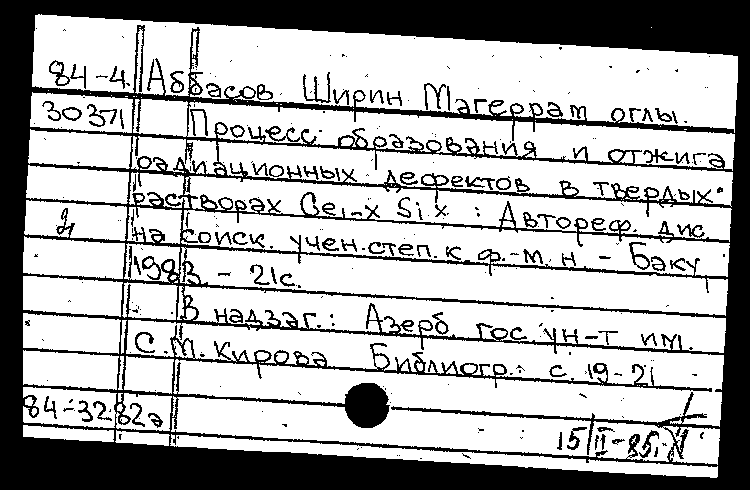 84-4 Аббасов, Ширин Магеррам оглы.
30371 Процесс образования и отжига
радиационных дефектов в твердых
растворах Ge1-x Six : Автореф. дис.
на соиск. учен. степ. к. ф.-м. н. - Баку,
1983. - 21с.
В надзаг.: Азерб. гос. ун-т им.
С.М. Кирова. Библиогр.: с. 19-21
84-3282а
15/II-85.